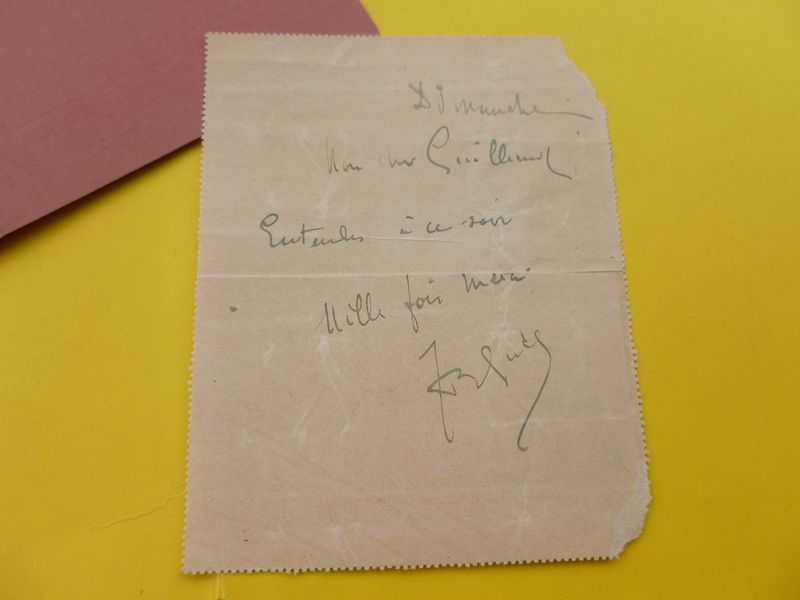 Dimanche
Mon cher Guillemot,
Entendu à ce soir
Mille fois merci